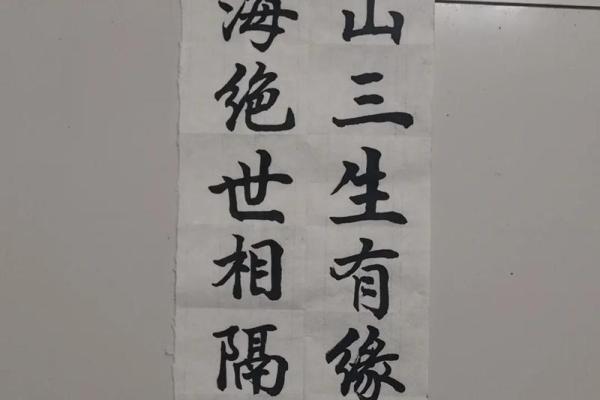 山三生有缘
海绝世相隔